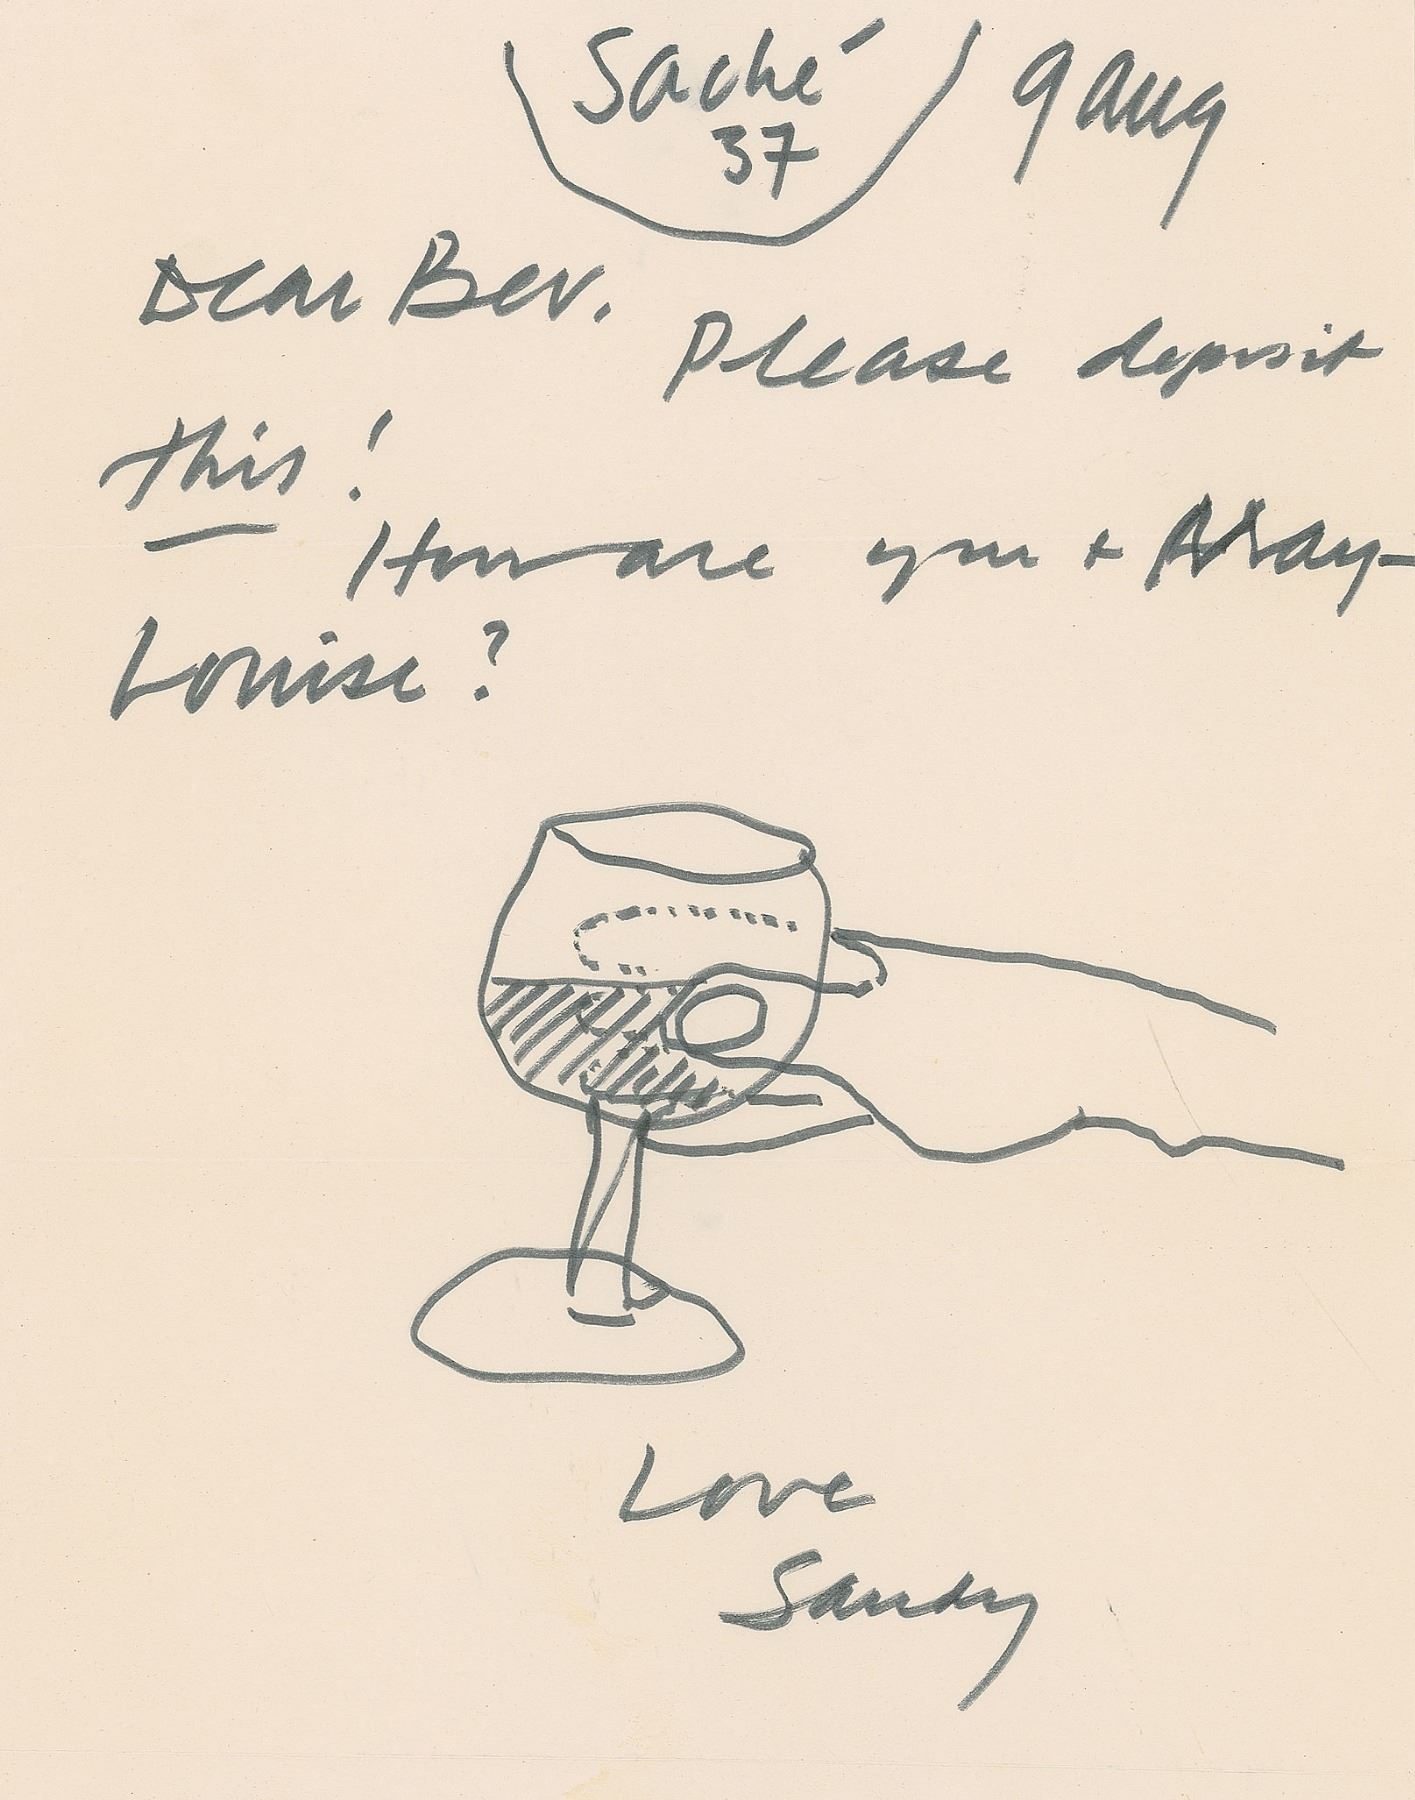 Saché 9 Aug
37
Dear Bev.
Please deposit
this!
How are you + May-
Louise?
Love
Sandy